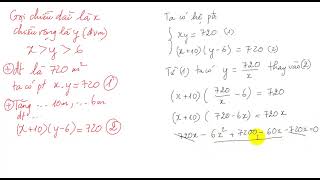 Gọi chiều dài là x
chiều rộng là y (đvm)
x > y > 6
+) dt là 720 m²
ta có pt x.y = 720 (1)
+) Tăng ... 10m, ... 6m
dt ...
(x+10)(y-6) = 720 (2)
Ta có hệ pt
{ xy = 720 (1)
(x+10)(y-6) = 720 (2)
Từ (1) ta có y = 720/x thay vào (2)
(x+10)(720/x - 6) = 720
(x+10)(720-6x) = 720x
720x - 6x² + 7200 - 60x - 720x = 0